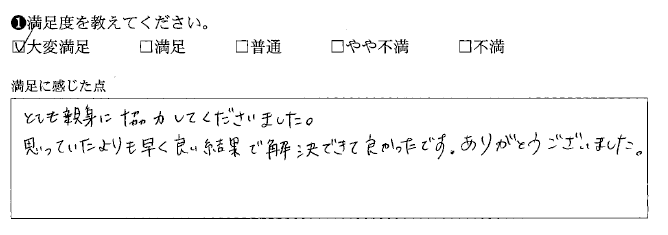 ❶満足度を教えてください。
☑大変満足 □満足 □普通 □やや不満 □不満
満足に感じた点
とても親身に協力してくださいました。
思っていたよりも早く良い結果で解決できて良かったです。ありがとうございました。